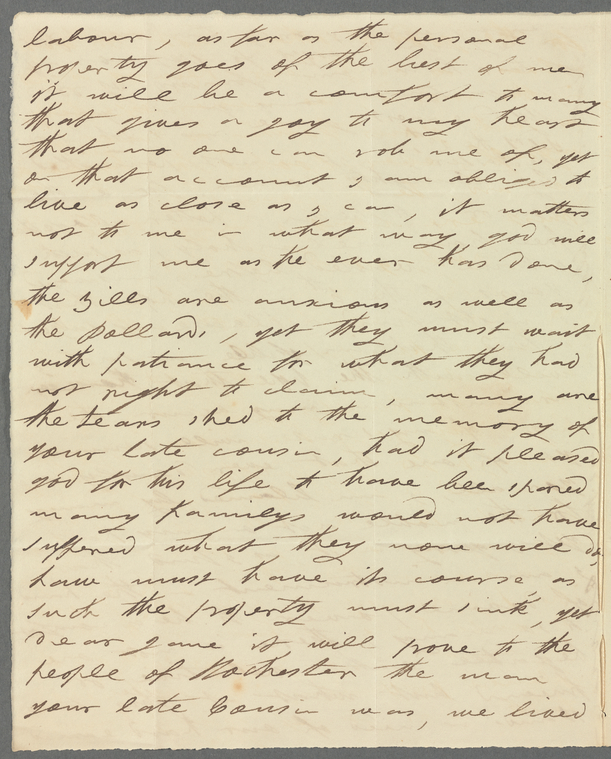 labour, as far as the personal
property goes of the best of men
it will be a comfort to many
that gives a joy to my heart
that no one can rob me of, yet
on that account I am obliged to
live as close as I can, it matters
not to me in what way god will
support me as he ever has done,
the Bills are anxious as well as
the Pollards, yet they must wait
with patiance for what they had
not right to claim, many are
the tears shed to the memory of
your late cousin, had it pleased
god for his life to have been spared
many familys would not have
suffered what they now will do,
law must have its course, as
such the property must sink, yet
Dear Jane it will prove to the
people of Rochester the man
your late Cousin was, we lived